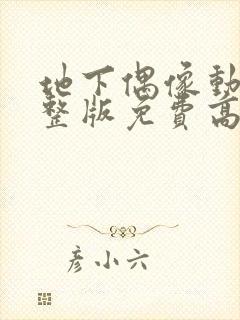 地下偶像動
整版免費高
彦小六